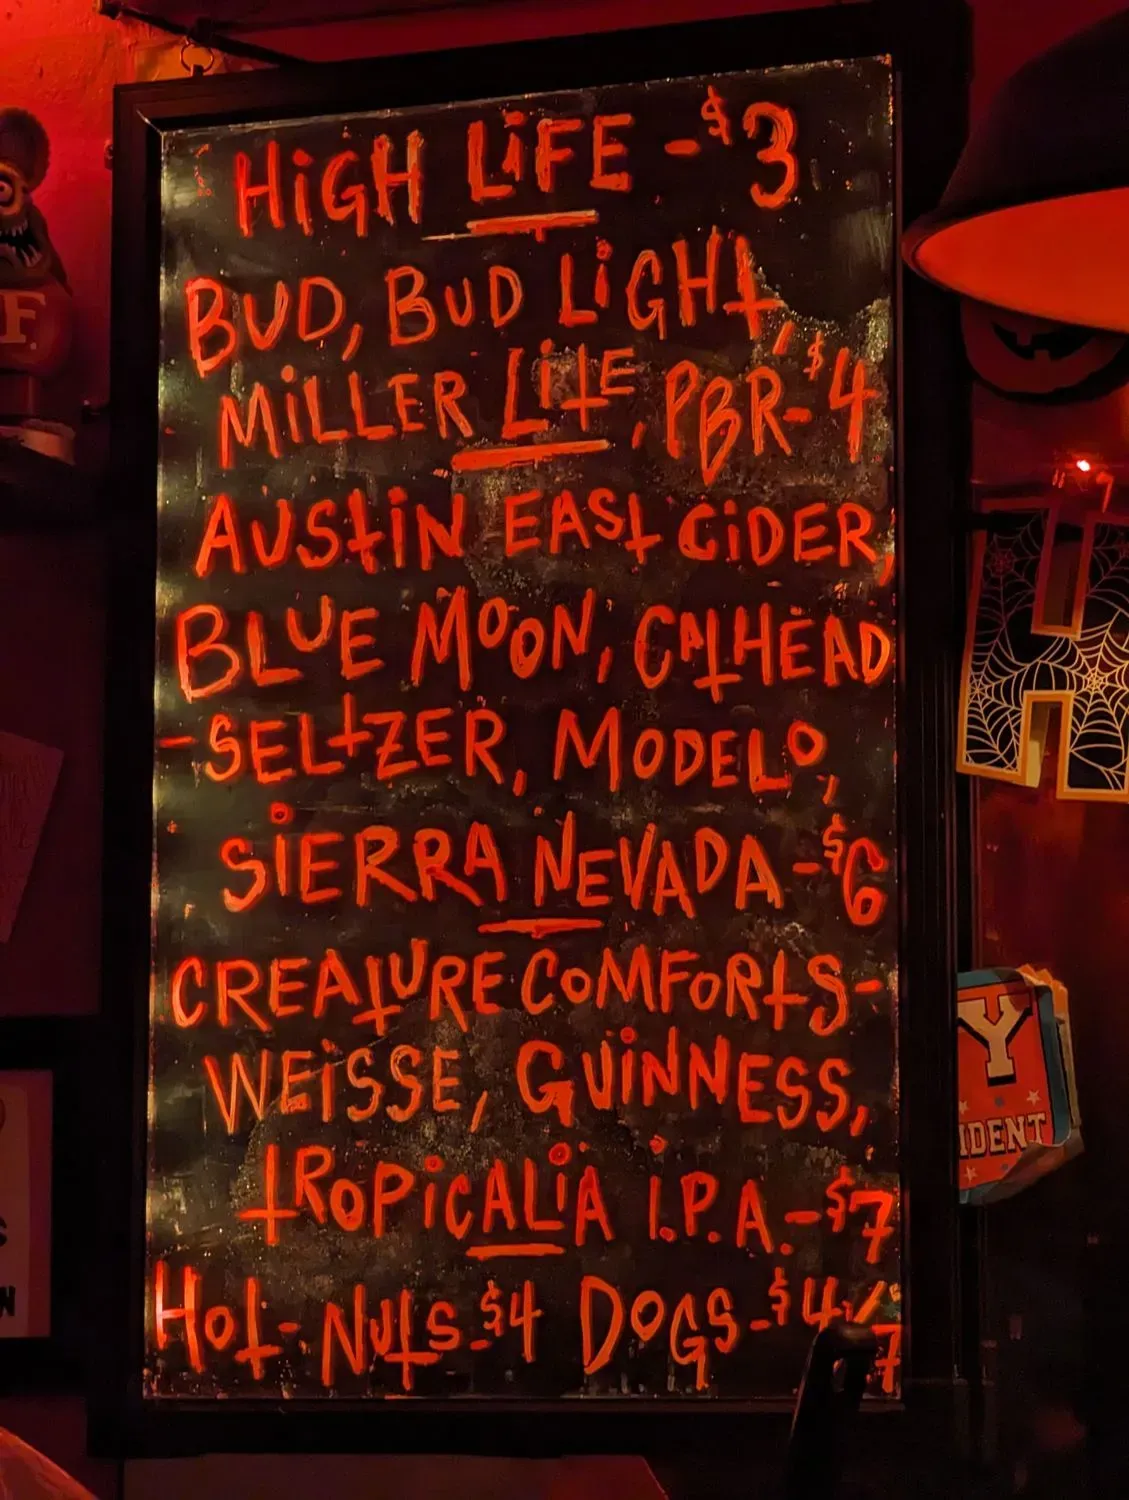 HiGH LiFE - $3
BUD, BUD LiGHt,
MiLLER LitE, PBR- $4
AUStiN EASt CiDER,
BLUE MOON, CAtHEAD
-SELtZER, MODELO,
SiERRA NEVADA - $6
CREAtURE COMFORtS-
WEiSSE, GUiNNESS,
tROPiCALiA I.P.A. - $7
Hot- NUtS - $4 DOGS - $4/
7
F.
H
Y
IDENT